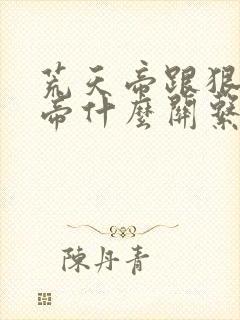 荒天帝跟狠
帝什麼關繫
陳丹青